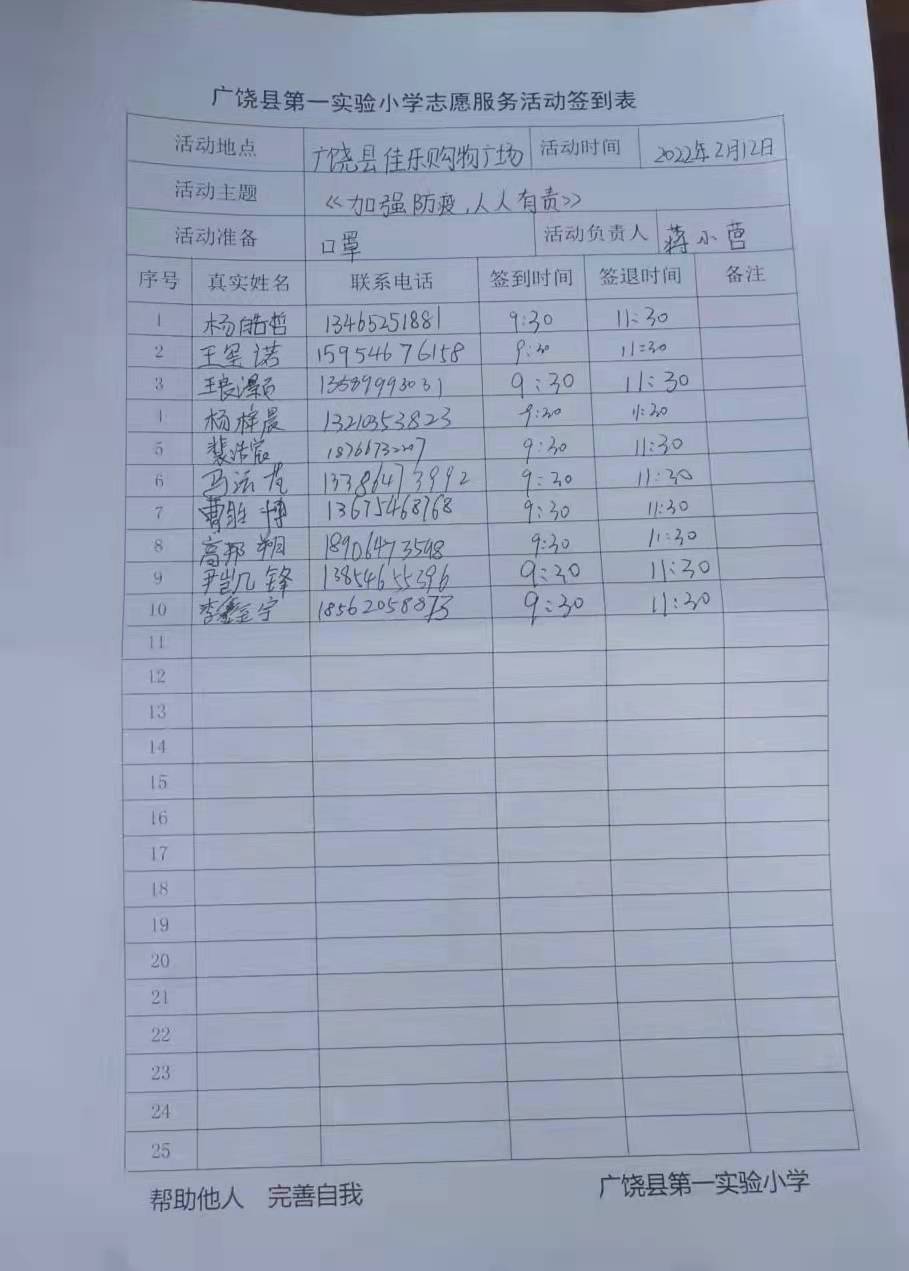 广饶县第一实验小学志愿服务活动签到表
活动地点 广饶县佳乐购物广场 活动时间 2022年2月12日
活动主题 《加强防疫,人人有责》
活动准备 口罩 活动负责人 蒋小营
序号 真实姓名 联系电话 签到时间 签退时间 备注
1 杨皓哲 13465251881 9:30 11:30
2 王 诺 15954676158 9:30 11:30
3 13589993031 9:30 11:30
1 杨梓晨 13210353823 9:30 11:30
5 裴浩宸 9:30 11:30
6 冯 13386473992 9:30 11:30
7 曹胜博 13675468768 9:30 11:30
8 高邦翔 18906473548 9:30 11:30
9 尹凯锋 13854655396 9:30 11:30
10 李 宁 18562058873 9:30 11:30
11
12
13
14
15
16
17
18
19
20
21
22
23
24
25
帮助他人 完善自我 广饶县第一实验小学